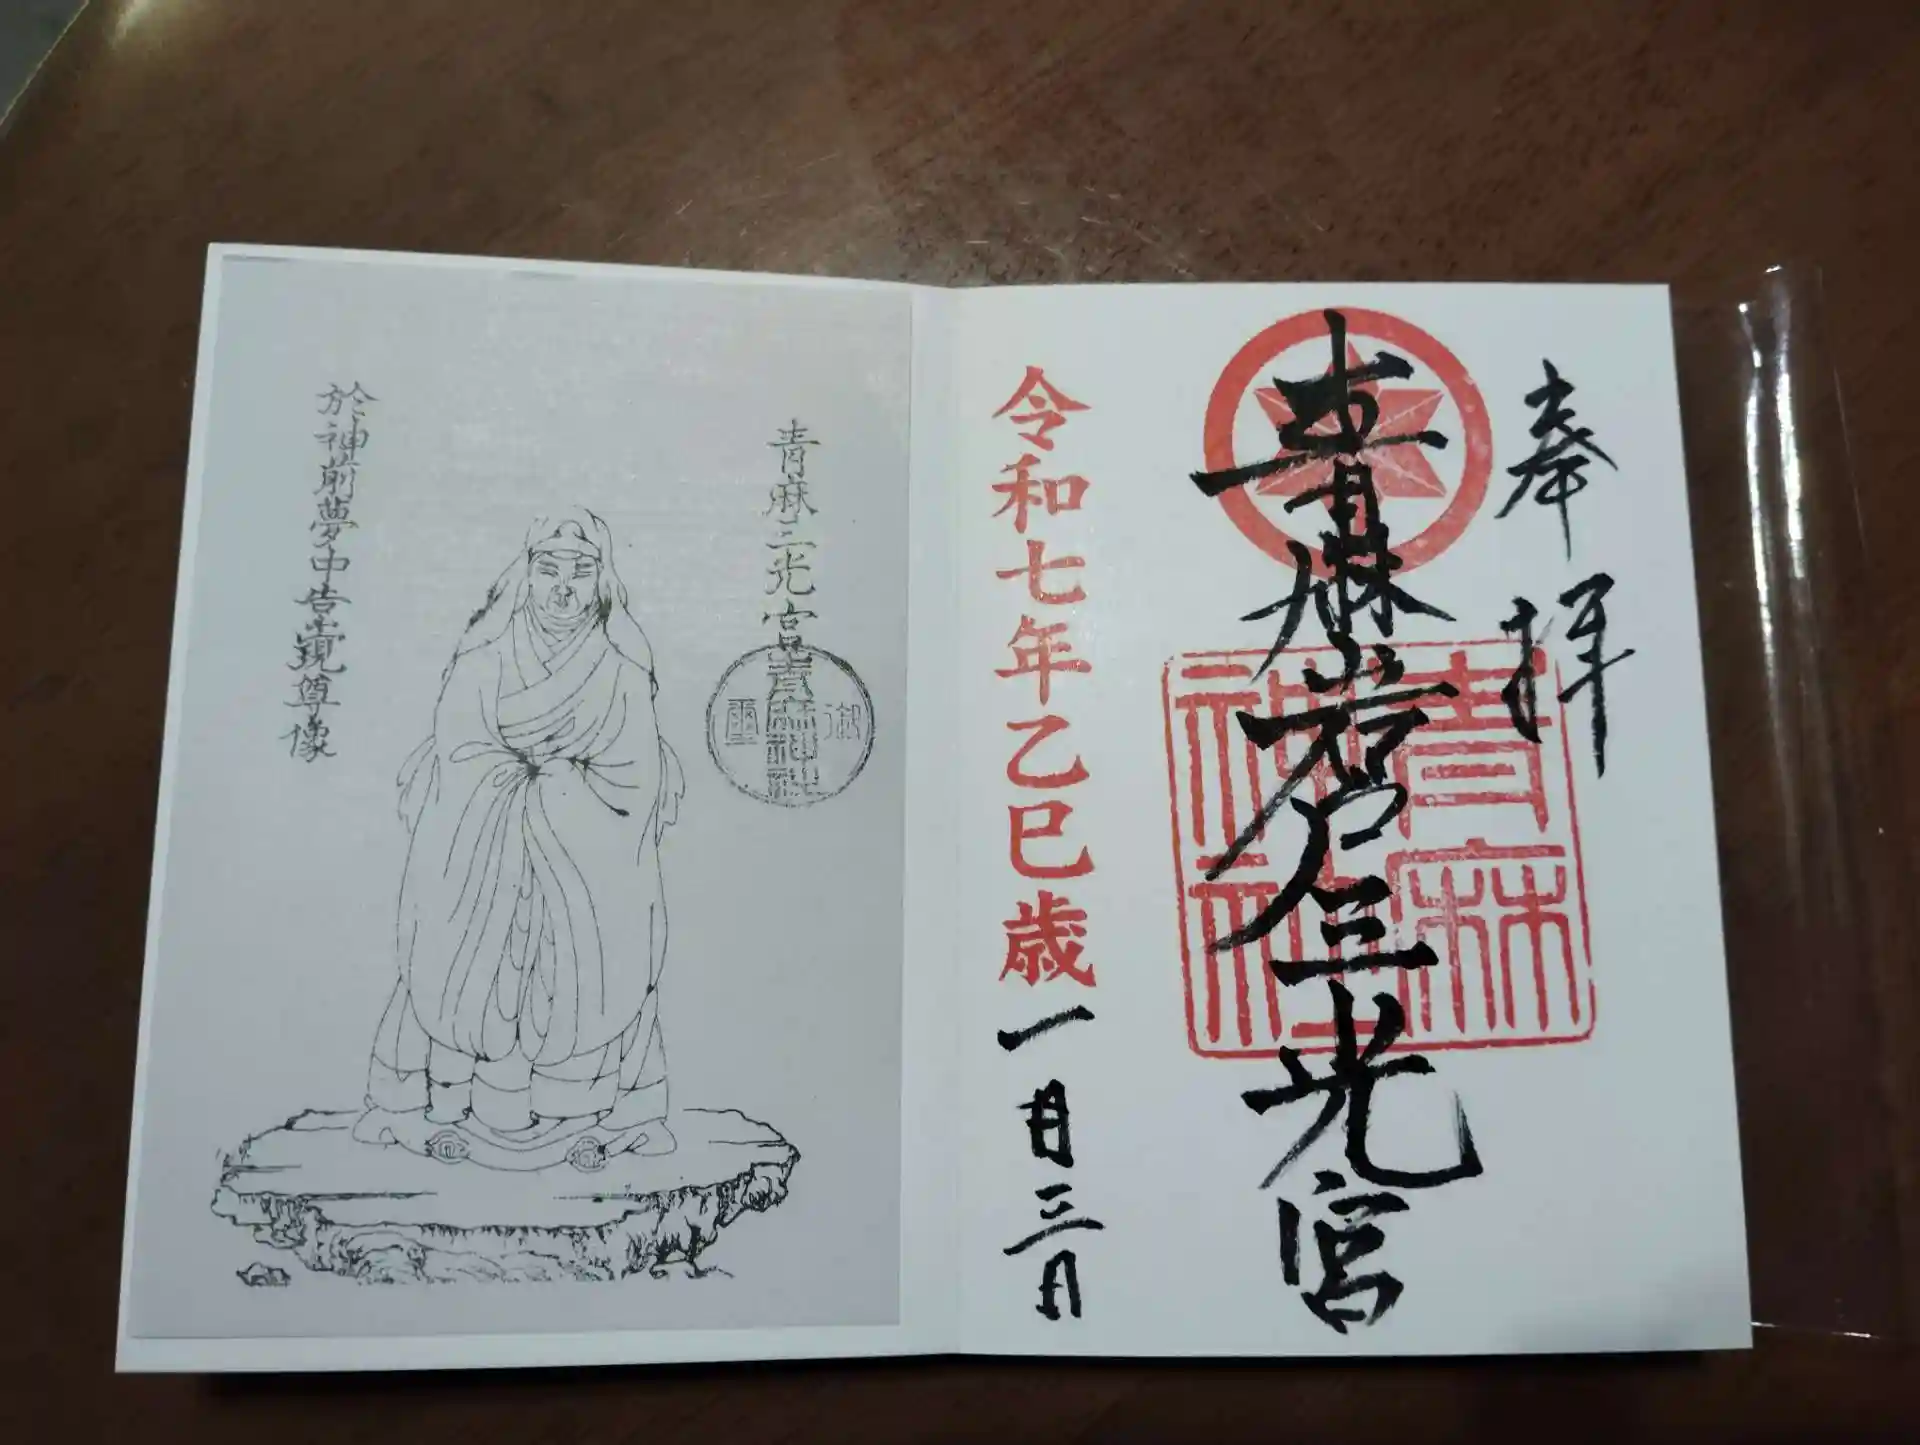 奉拝
青麻岩戸三光宮
青麻
神社
令和七年乙巳歳
一月三日
青麻三光宮
御
青麻神社
璽
於神前夢中告覚尊像